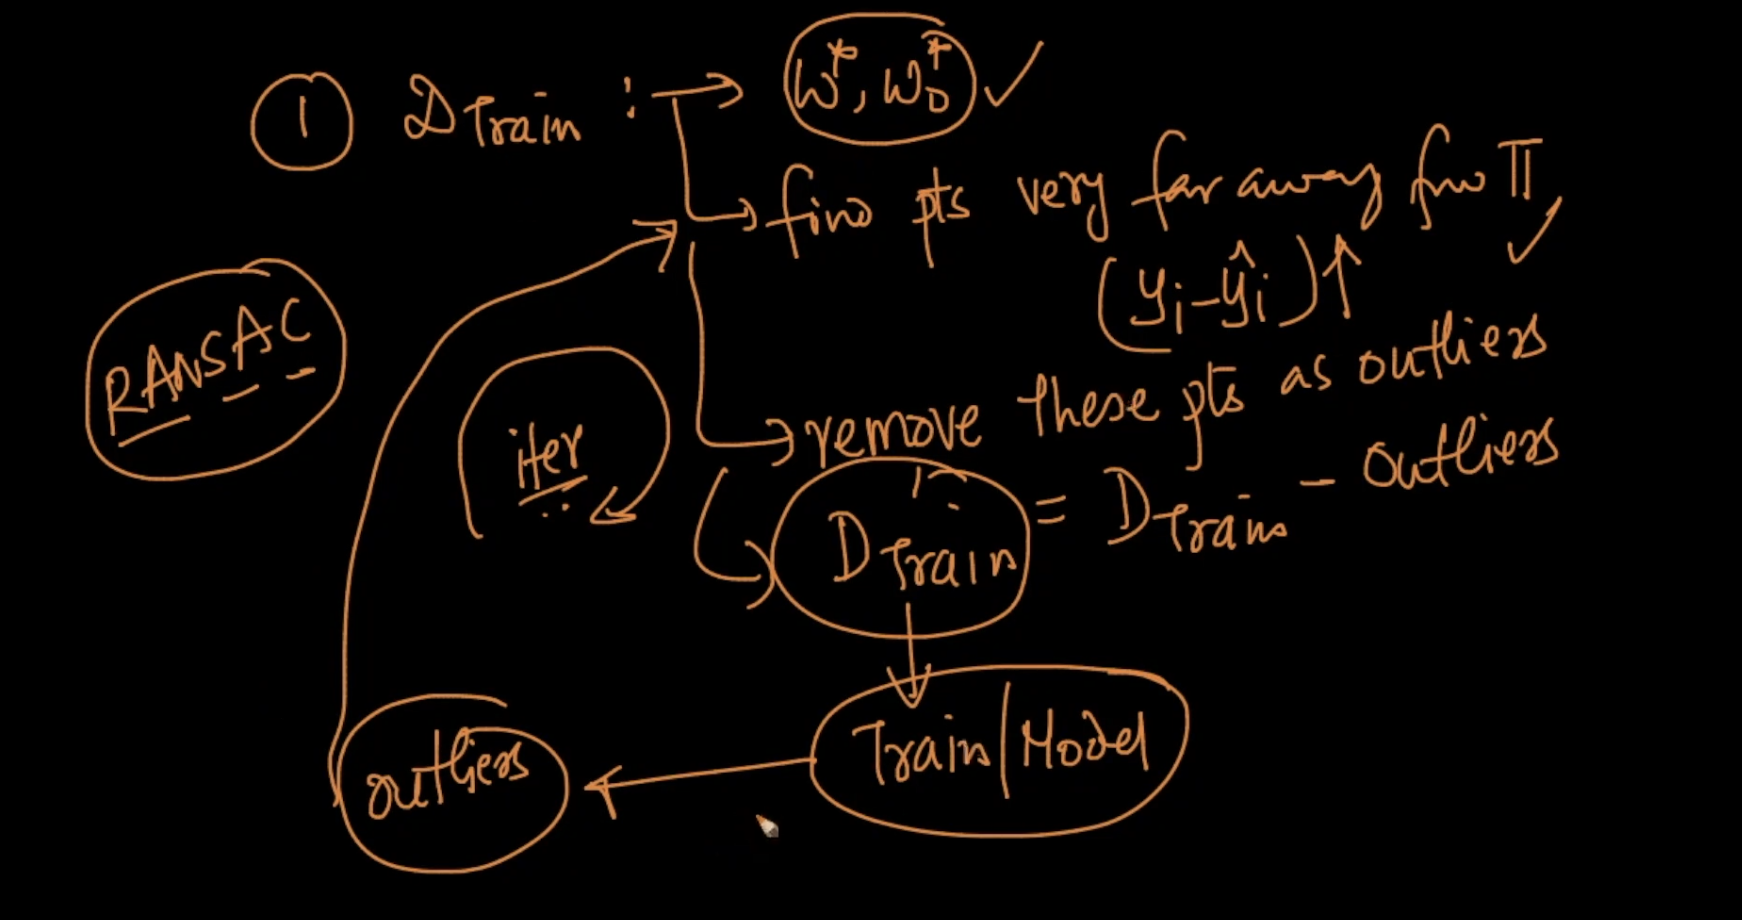 1 D Train : → w*, w₀* ✓
→ find pts very far away from π ✓
(yi - ŷi) ↑
RANSAC
iter
→ remove these pts as outliers
D' Train = D Train - outliers
Train/Model
outliers